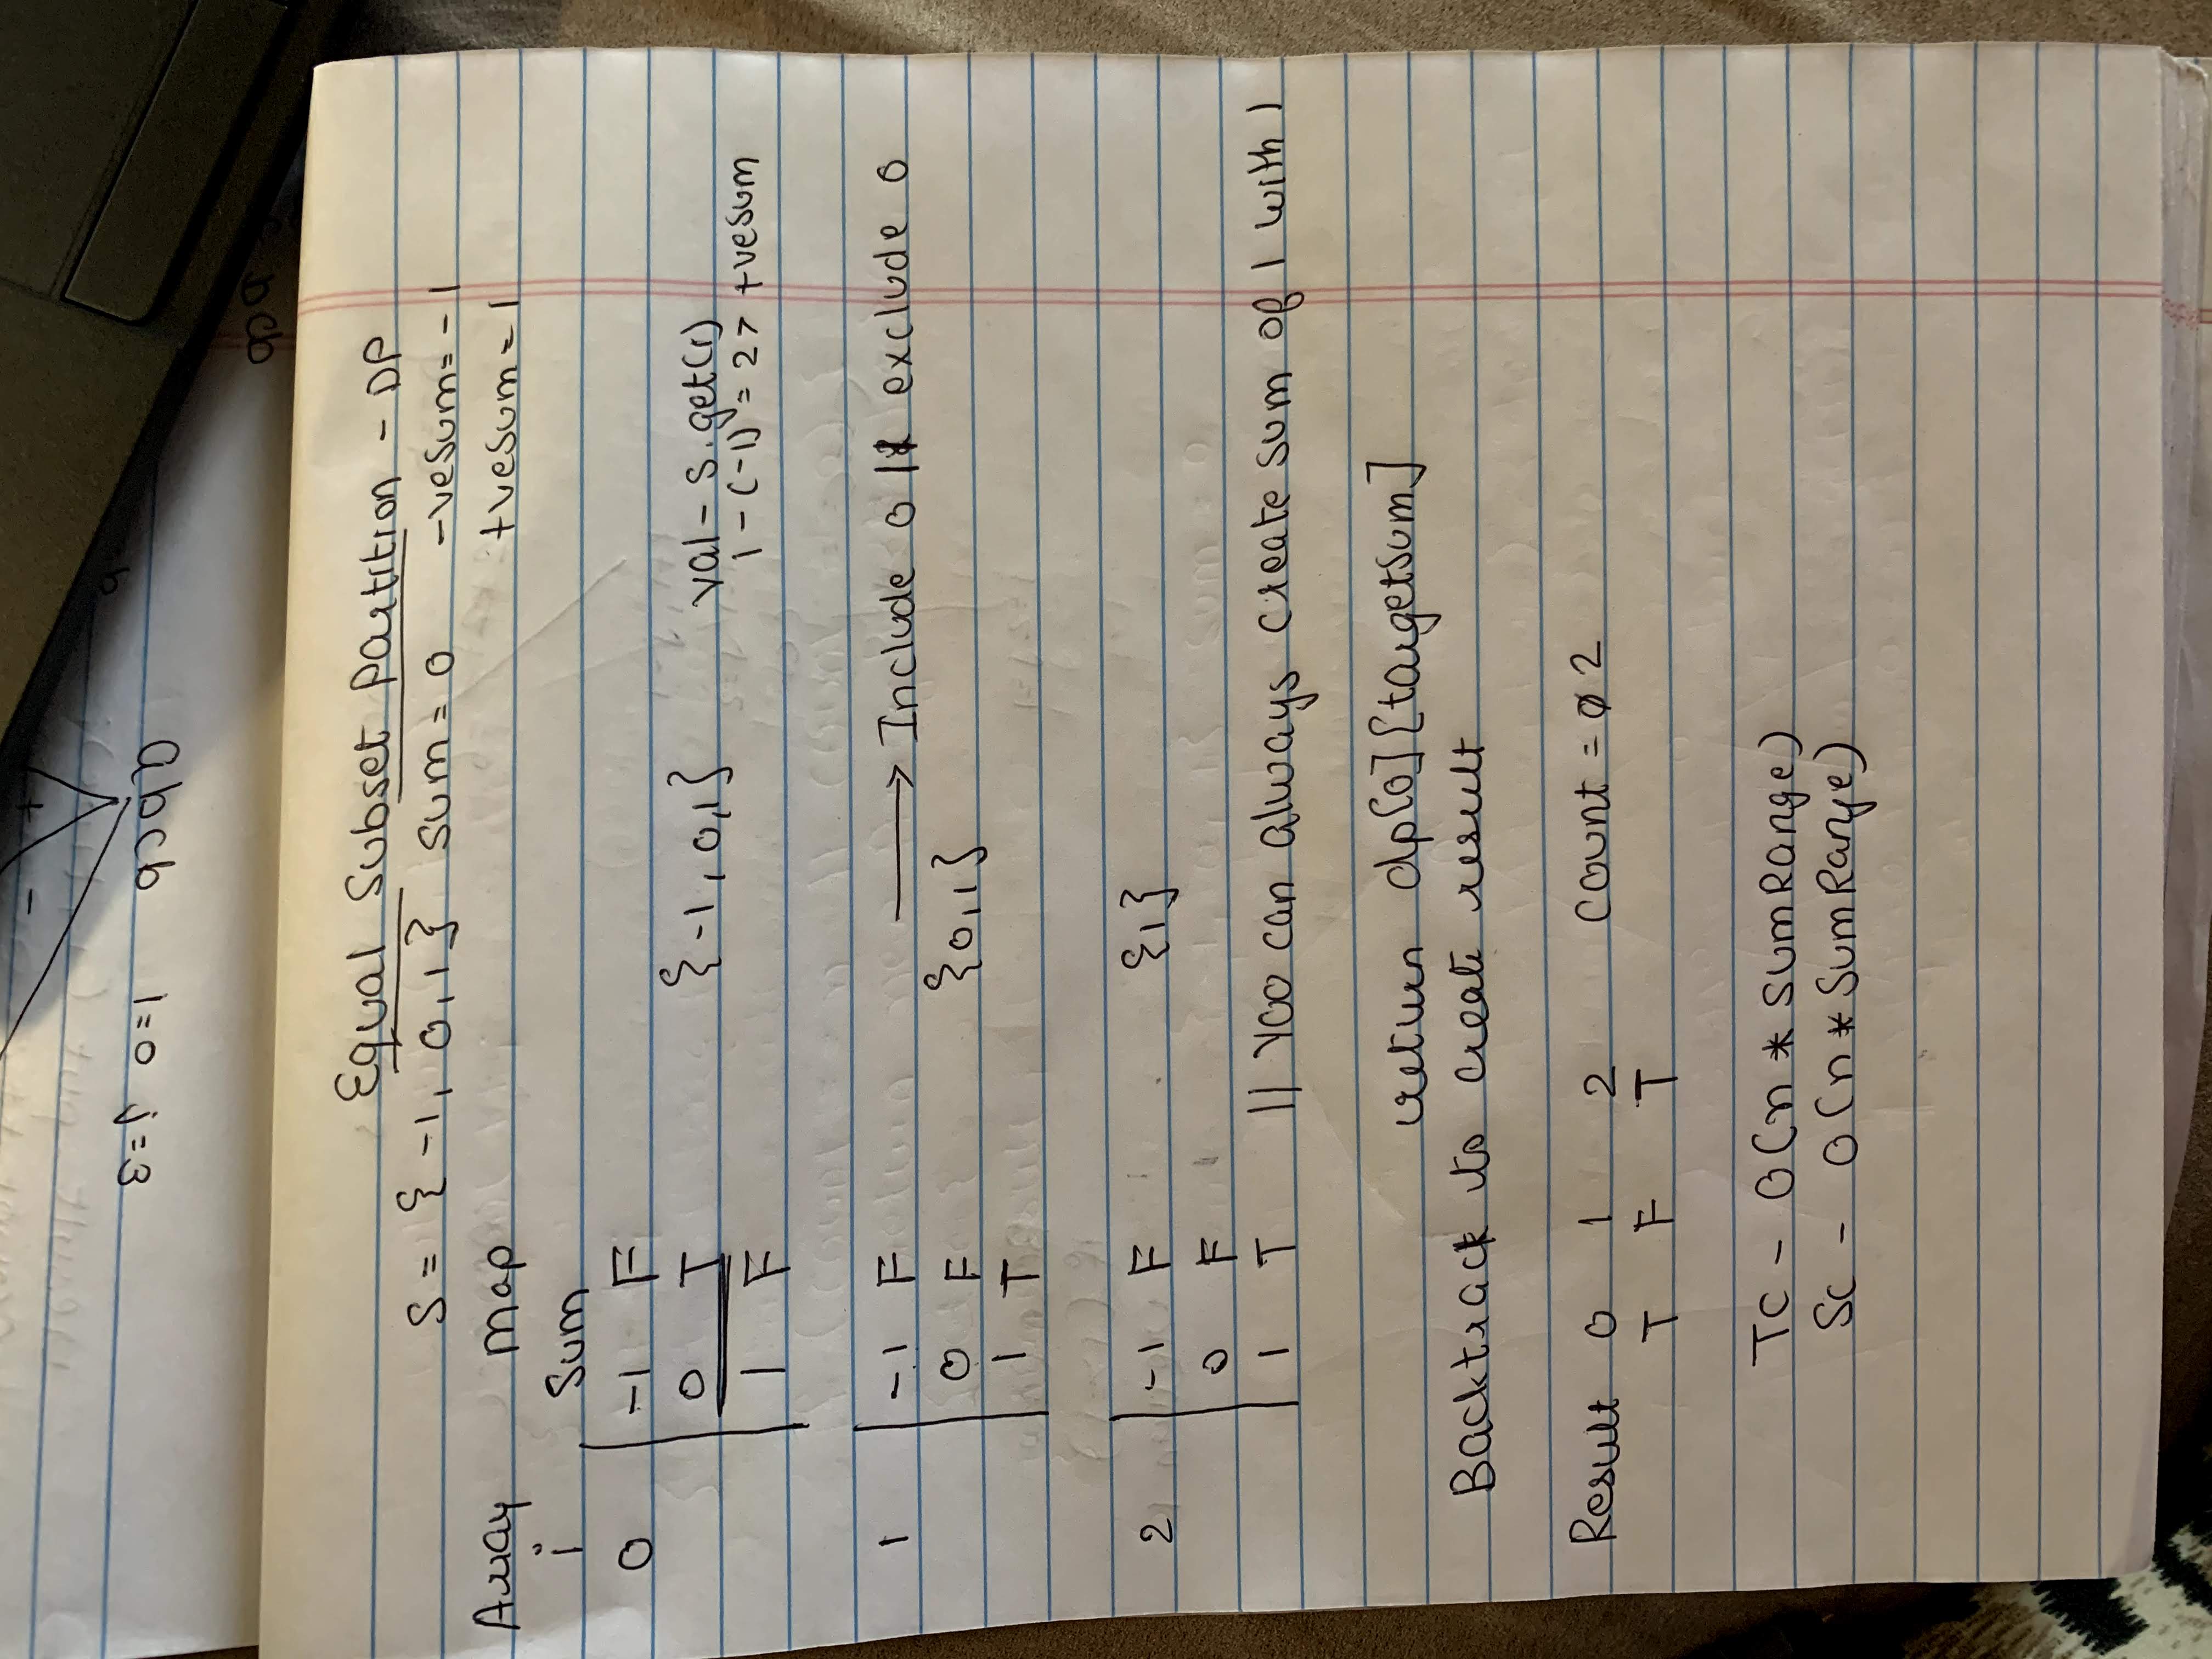 abcb i=0 j=3
- +
Equal Subset Partition - DP
S = {-1, 0, 1} sum = 0 -vesum = -1
Array Map +vesum = 1
i Sum
0 -1 F
0 T {-1, 0, 1} val - s.get(i)
1 F 1 - (-1) = 2 > +vesum
1 -1 F → Include 0 || exclude 0
0 F {0, 1}
1 T
2 -1 F {1}
0 F
1 T // You can always create sum of 1 with 1
return dp[0][targetsum]
Backtrack to create result
Result 0 1 2 Count = 0 2
T F T
TC - O(n * sumRange)
SC - O(n * SumRange)